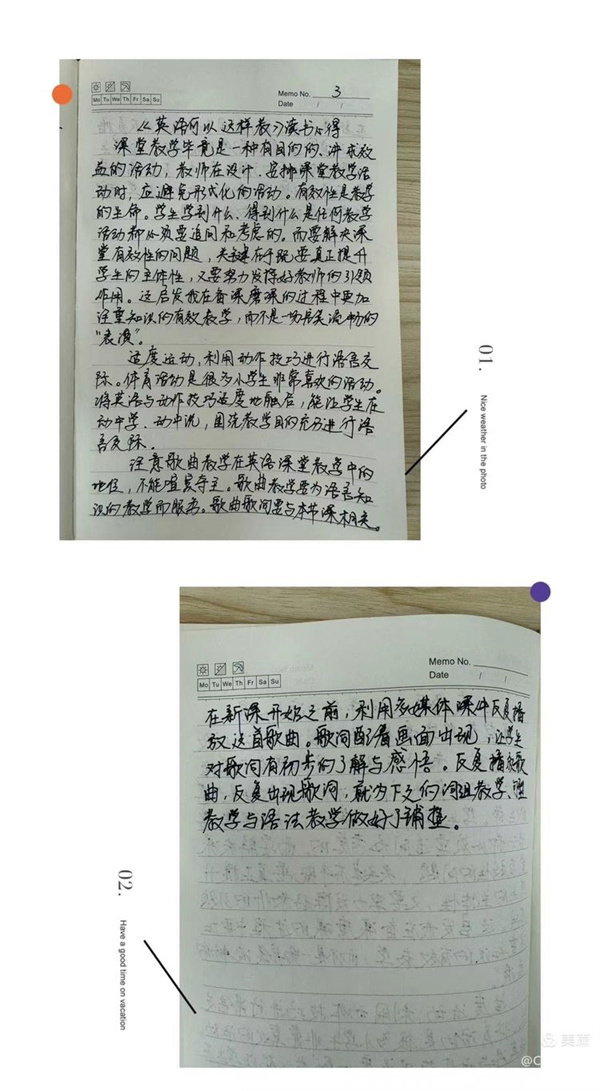 Mo Tu We Th Fr Sa Su
Memo No. 3
Date / /
《英语可以这样教》读书心得
课堂教学毕竟是一种有目的的、讲求效
益的活动，教师在设计、安排课堂教学活
动时，应避免形式化的活动。有效性是教学
的生命。学生学到什么、得到什么是任何教学
活动都必须要追问和考虑的。而要解决课
堂有效性的问题，关键在于既要真正提升
学生的主体性，又要努力发挥好教师的引领
作用。这启发我在备课磨课的过程中更加
注重知识的有效教学，而不是一场异类流动的
“表演”。
适度运动，利用动作技巧进行语言交
际。体育活动是很多小学生非常喜欢的活动。
将英语与动作技巧适度地融合，能让学生在
动中学、动中说，围绕教学目的充分进行语
言交际。
注意歌曲教学在英语课堂教学中的
地位，不能喧宾夺主。歌曲教学要为语言知
识的教学而服务。歌曲歌词要与本节课相关。
01.
Nice weather in the photo
Mo Tu We Th Fr Sa Su
Memo No.
Date / /
在新课开始之前，利用多媒体课件反复播
放这首歌曲。歌词配着画面出现，让学生
对歌词有初步的了解与感悟。反复播放歌
曲，反复出现歌词，就为下文的词组教学、
教学与语法教学做好了铺垫。
02.
Have a good time on vacation
美篇